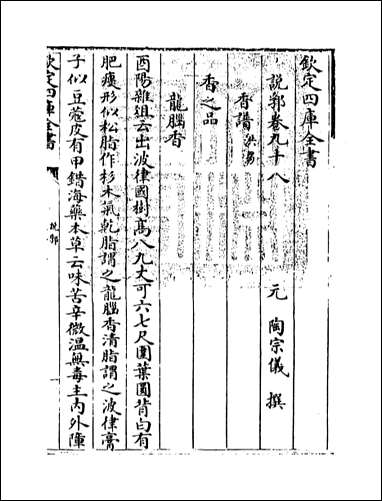 欽定四庫全書
說郛卷九十八
元 陶宗儀 撰
香譜 洪芻
香之品
龍腦香
酉陽雜俎云出波律國樹髙八九丈可六七尺圍葉圓背白有
肥瘦形似松脂作杉木氣乾脂謂之龍腦香清脂謂之波律膏
子似豆蔻皮有甲錯海藥本草云味苦辛微温無毒主内外障
欽定四庫全書
說郛